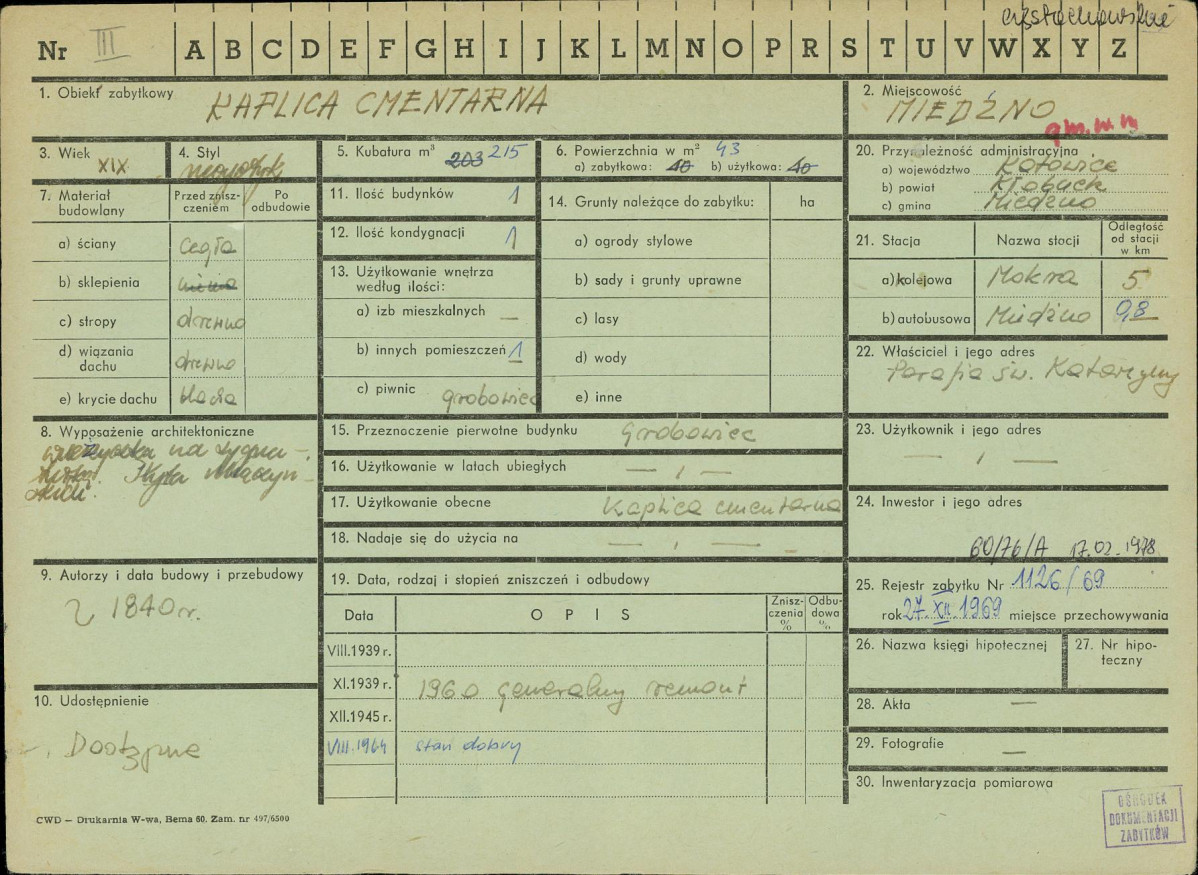 częstochowskie
Nr III A B C D E F G H I J K L M N O P R S T U V W X Y Z
1. Obiekt zabytkowy KAPLICA CMENTARNA
2. Miejscowość MIEDŹNO
3. Wiek XIX
4. Styl
5. Kubatura m³ 203 215
6. Powierzchnia w m² 43
a) zabytkowa: 40 b) użytkowa: 40
7. Materiał budowlany
Przed zniszczeniem
Po odbudowie
a) ściany cegła
b) sklepienia
c) stropy drewno
d) wiązania dachu drewno
e) krycie dachu blacha
8. Wyposażenie architektoniczne
wieżyczka na sygna-
9. Autorzy i data budowy i przebudowy
1840 r.
10. Udostępnienie
Dostępne
11. Ilość budynków 1
12. Ilość kondygnacji 1
13. Użytkowanie wnętrza według ilości:
a) izb mieszkalnych —
b) innych pomieszczeń 1
c) piwnic grobowiec
14. Grunty należące do zabytku: ha
a) ogrody stylowe
b) sady i grunty uprawne
c) lasy
d) wody
e) inne
15. Przeznoczenie pierwotne budynku Grobowiec
16. Użytkowanie w latach ubiegłych — , —
17. Użytkowanie obecne Kaplica cmentarna
18. Nadaje się do użycia na — , — –
19. Data, rodzaj i stopień zniszczeń i odbudowy
Data OPIS Zniszczenia % Odbudowa %
VIII.1939 r.
XI.1939 r. 1960 generalny remont
XII.1945 r.
VIII.1964 stan dobry
20. Przynależność administracyjna
a) województwo Katowice
b) powiat Kłobuck
c) gmina Miedźno
21. Stacja Nazwa stacji Odległość od stacji w km
a) kolejowa Mokra 5
b) autobusowa Miedźno 0,8
22. Właściciel i jego adres
Parafia św. Katarzyny
23. Użytkownik i jego adres
— , —
24. Inwestor i jego adres
60/76/A 17.02.1978
25. Rejestr zabytku Nr 1126/69
rok 27 XII 1969 miejsce przechowywania
26. Nazwa księgi hipotecznej
27. Nr hipoteczny
28. Akta —
29. Fotografie —
30. Inwentaryzacja pomiarowa
CWD — Drukarnia W-wa, Bema 60. Zam. nr 497/6500
OŚRODEK
DOKUMENTACJI
ZABYTKÓW